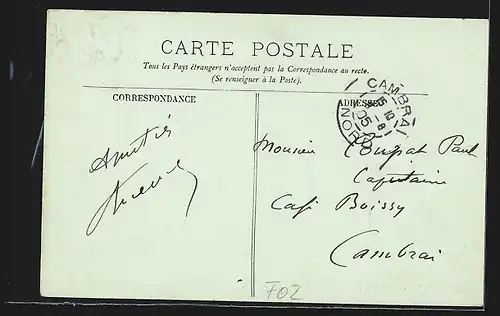 CARTE POSTALE
Tous les Pays étrangers n'acceptent pas la Correspondance au recto.
(Se renseigner à la Poste).
CORRESPONDANCE
ADRESSE
CAMBRAI
NORD
Amitiés
Monsieur Paul
Capitaine
Café Boissy
Cambrai
F02